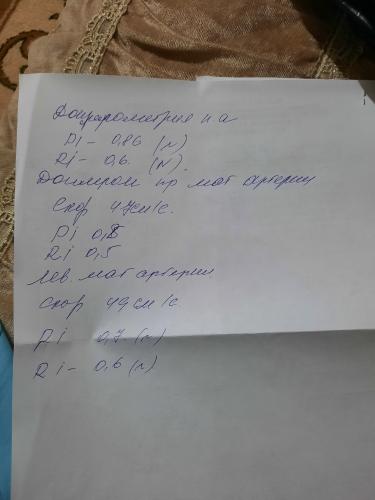 Допплерометрия п а
Pi - 0,86 (N)
Ri - 0,6. (N).
Допплером пр мат артерии
Скор 47см/с.
Pi 0,8
Ri 0,5
Лев. мат артерии.
Скор 49 см/с.
Pi 0,7 (N)
Ri - 0,6 (N)